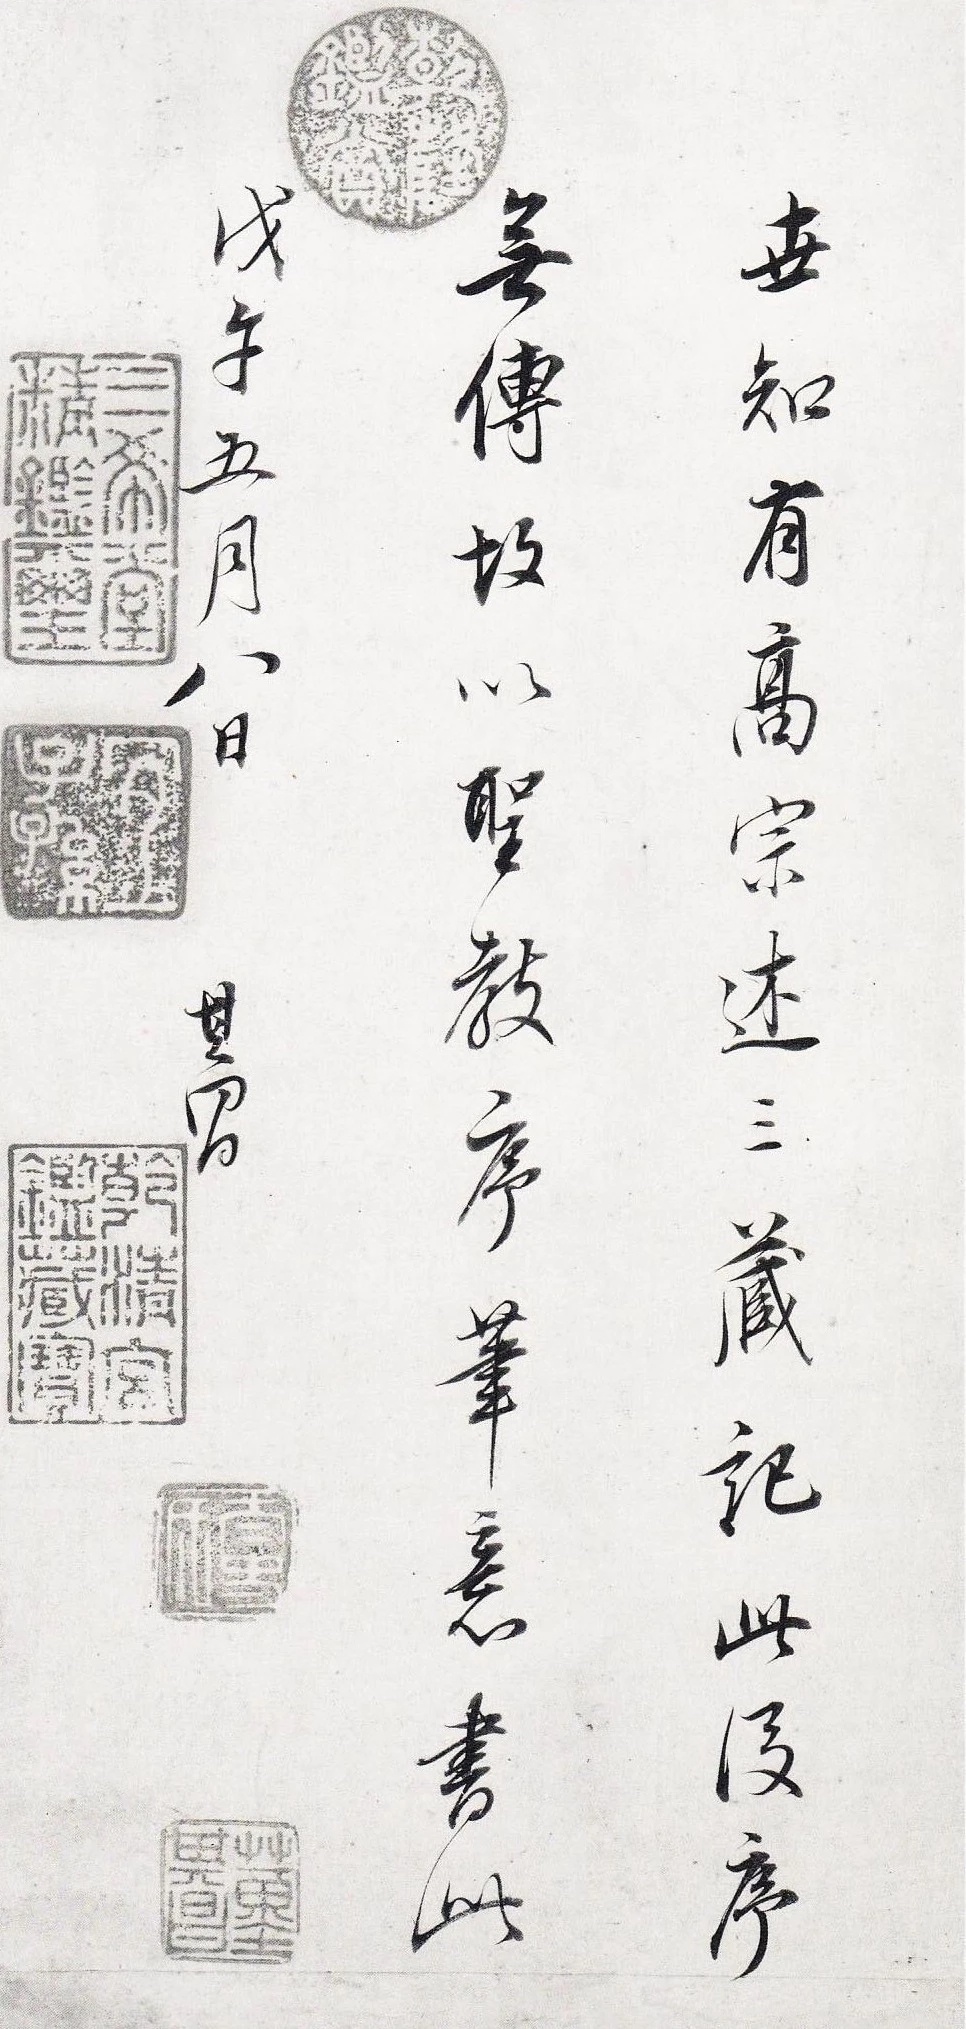 世知有高宗述三藏記此後序
無傳故以聖教序筆意書此
戊午五月八日 其昌
乾隆鑑賞
三希堂精鑑璽
宜子孫
乾清宮鑑藏寶
董其昌